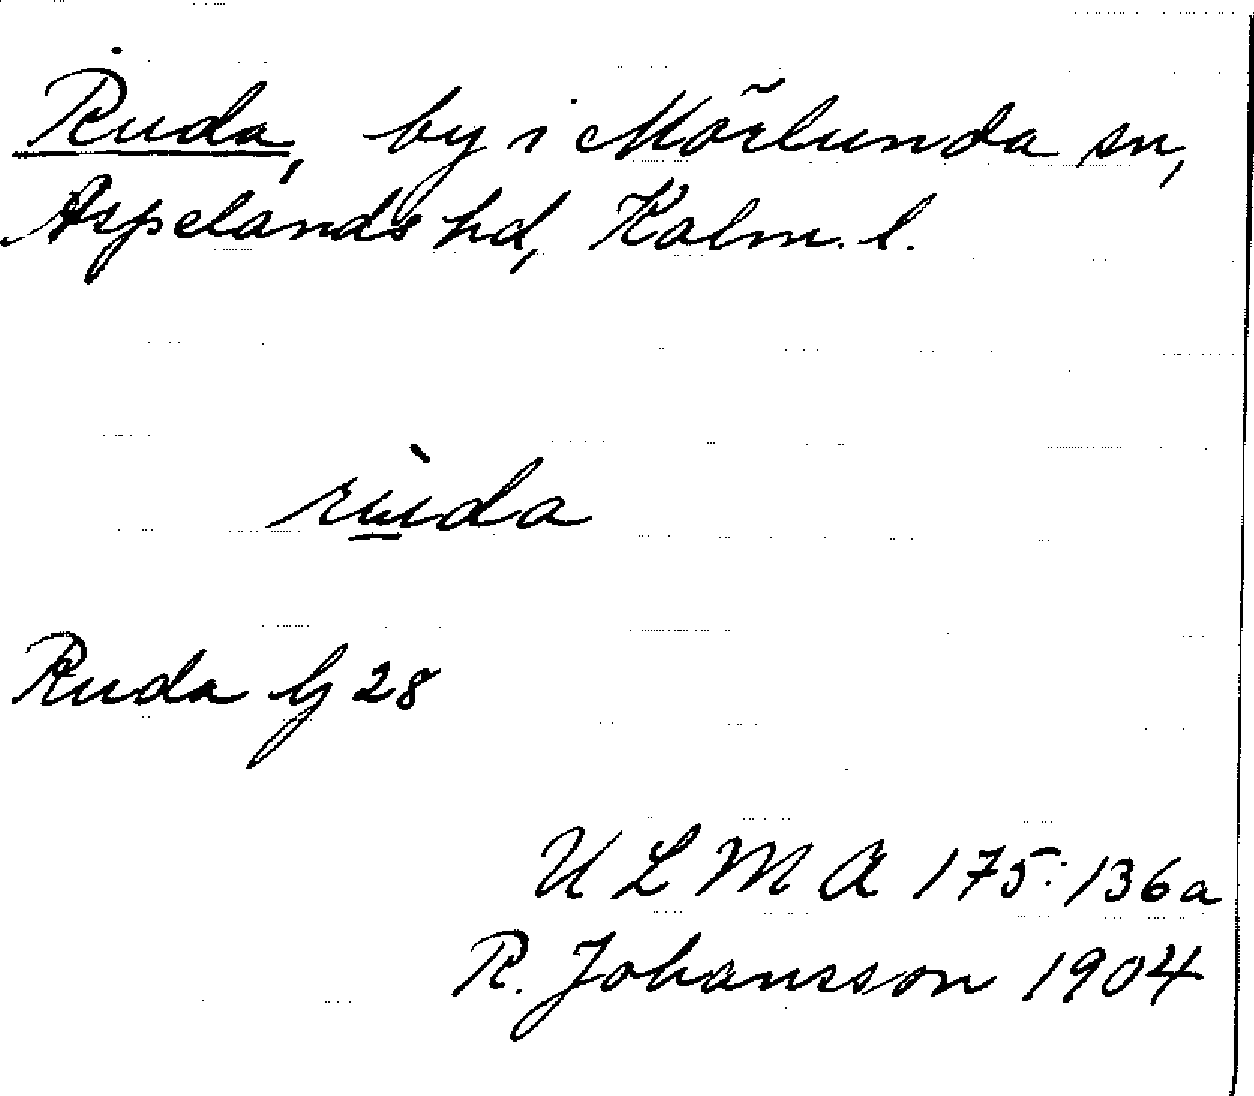 Ruda, by i Mörlunda sn,
Aspelands hd, Kalm. l.
rùda
Ruda Gj 28
U L M A 175:136a
R. Johansson 1904